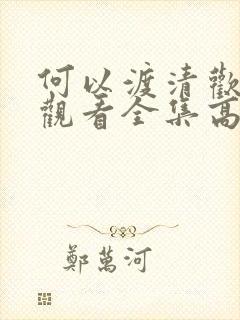 何以渡清歡
觀看全集高
鄭萬河